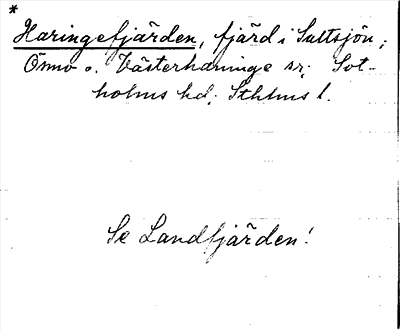 *
Haringefjärden, fjärd i Saltsjön;
Ösmo o. Västerhaninge sr; Sot-
holms hd; Sthlms l.
Se Landfjärden!